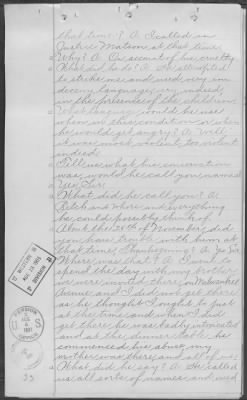 that time? A. I called on
Justice Watson at that time.
Q Why? A. On account of his cruelty
Q What did he do? A. He attempted
to strike me and used very in-
decent language, very indeed
in the presence of the children.
Q What language would he use
when in this condition when
he would get angry? A. Well
it was most violent, too violent
indeed.
Q Tell us what his conversation
was, would he call you names?
A Yes, Sir.
Q What did he call you? A.
Bitch and whore and everything
he could possibly think of.
Q About the 28th of November did
you have trouble with him at
that time, Thanksgiving? A. Yes Sir
Q Where was that? A. I went to
spend the day with my brother
we were invited there on
Avenue and I did not get there
as he thought I ought to just
at the time and when I did
get there he was badly intoxicated
and at the dinner table he
commenced his abuse, my
mother was there and all of us.
Q What did he say? A. He called
us all sorts of names and used
PENSION
U S
OFFICE
33